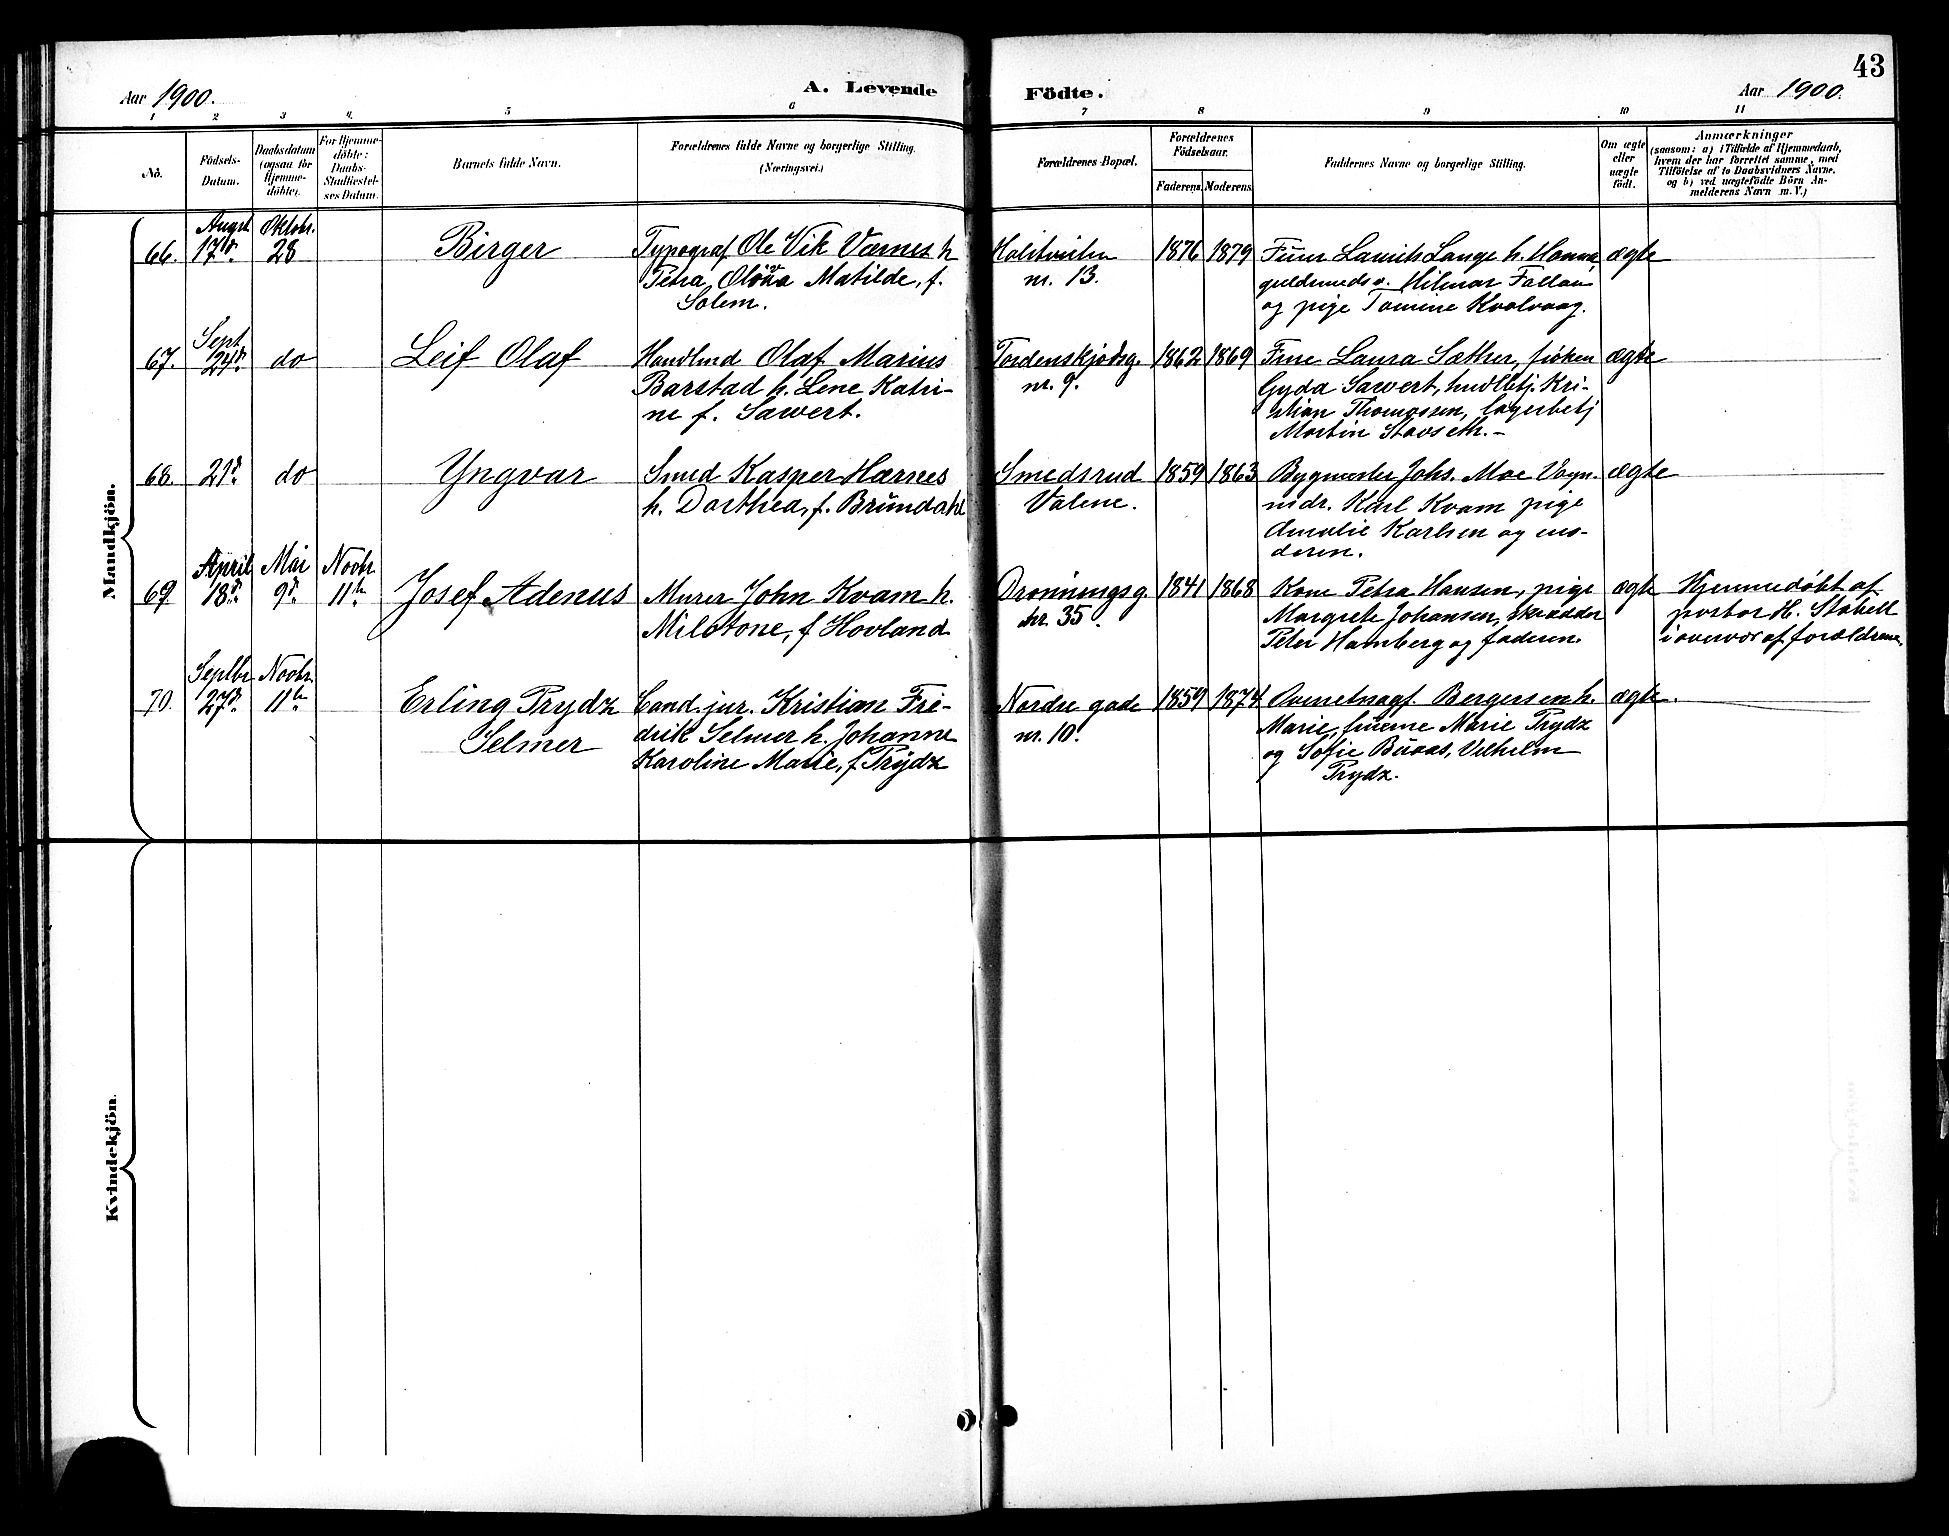 43
Aar 1900.
A. Levende Födte.
Aar 1900.
1 2 3 4. 5 6 7 8 9 10 11
No.
Födsels-
Datum.
Daabsdatum
(ogsaa for
Hjemme-
döbte).
For Hjemme-
döbte:
Daabs-
Stadfæstel-
ses Datum.
Barnets fulde Navn.
Forældrenes fulde Navne og borgerlige Stilling.
(Næringsvei.)
Forældrenes Bopæl.
Forældrenes
Födselsaar.
Faderens. Moderens.
Faddernes Navne og borgerlige Stilling.
Om ægte
eller
uægte
födt.
Anmærkninger
(saasom: a) i Tilfælde af Hjemmedaab,
hvem der har forrettet samme, med
Tilföielse af to Daabsvidners Navne.
og b) ved uægtefödte Börn An-
melderens Navn m. V.)
Mandkjön.
66.
Augst
17d.
Oktobr.
28
Birger
Typograf Ole Vik Værnes h
Petra Olöva Matilde, f.
Solem.
nr. 13.
1876 1879
Lange h. Hanna
guldsmedsv. Hilmar
og pige Tomine Kvalvaag.
ægte
67.
Sept.
24d.
do
Leif Olaf
Handlmd Olaf Marius
Barstad h. Lene Katri-
ne f. Sawert.
Tordenskjoldsg.
nr. 9.
1862 1869
Frue Laura Sæther, fröken
Gyda Sawert, hndlbtj. Kri-
stian Thomassen, lagerbetj
Martin Stavseth.-
ægte
68.
21d
do
Yngvar
Smed Kasper Hærnes
h. Dorthea, f. Brundahl
Smedsrud
Valene.
1859 1863
Bygmester Johs. Moe Vogn-
mdr. Karl Kvam pige
Amalie Karlsen og mo-
deren.
ægte
69
April
18d.
Mai
9d.
Novbr
11te
Josef Adenus
Murer John Kvam h.
f Hovland
Dronningsg.
nr. 35.
1841 1868
Kone Petra Hansen, pige
Margrete Johansen, skrædder
Peter Hamberg og faderen.
ægte
Hjemmedöbt af
pastor H. Stabell
i overvær af forældrene.
70.
Septbr
27d.
Novbr.
11te
Erling Prydz
Selmer
Cand. jur. Kristian Fre-
drik Selmer h. Johanne
Karoline Marie, f. Prydz
Nordre gade
nr. 10.
1859 1874
Bergersen h.
Marie, fruerne Marie Prydz
og Sofie Buaas, Vilhelm
Prydz.
ægte.
Kvindekjön.